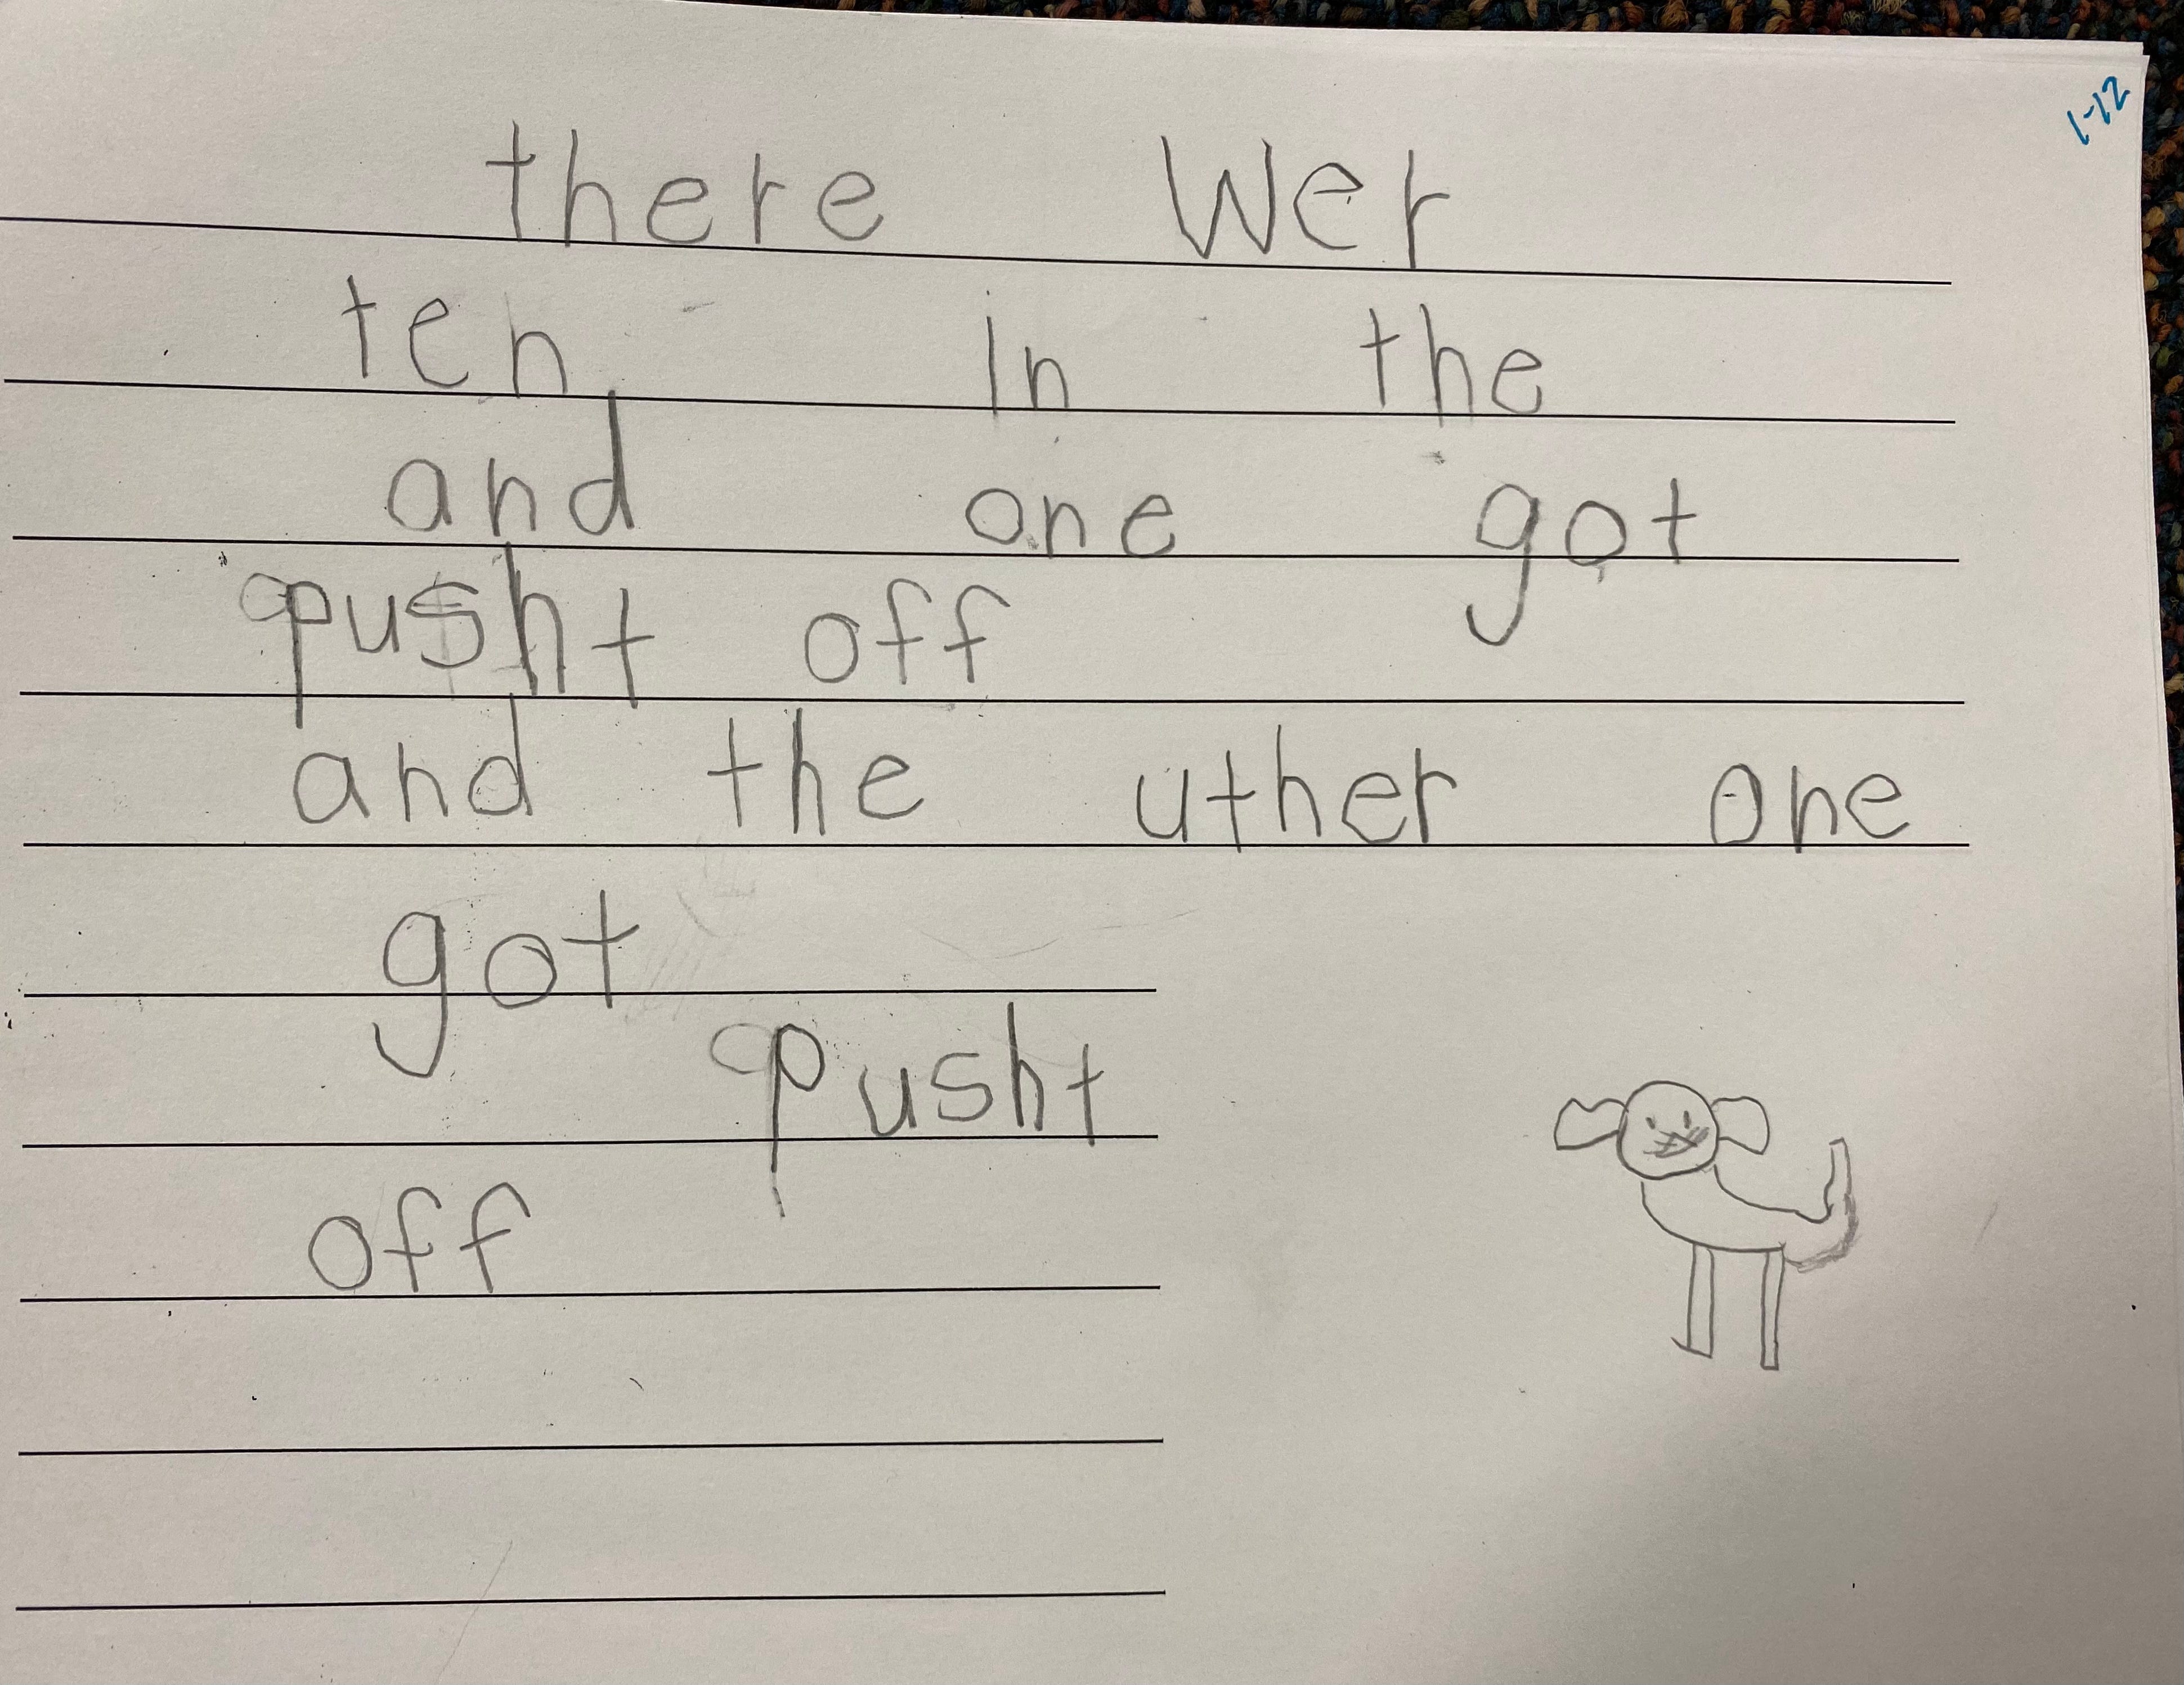 1-12
there Wer
ten in the
and one got
pusht off
and the uther one
got
pusht
off